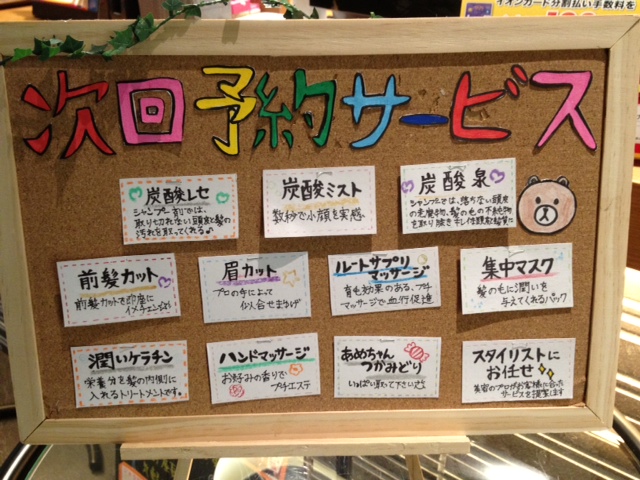 イオンカード分割払い手数料を
次回予約サービス
炭酸レセ
シャンプー剤では、
取り切れない頭皮と髪の
汚れを取ってくれる♪
炭酸ミスト
数秒で小顔を実感
炭酸泉
シャンプーでは、落ちない頭皮
の老廃物、髪の毛の不純物
を取り除きキレイな頭皮髪質に
前髪カット
前髪カットで即座に
イメチェン
眉カット
プロの手によって
似合せまゆげ
ルートサプリ
マッサージ
育毛効果のある、プチ
マッサージで血行促進
集中マスク
髪の毛に潤いを
与えてくれるパック
潤いケラチン
栄養分を髪の内側に
入れるトリートメントです。
ハンドマッサージ
お好みの香りで
プチエステ
あめちゃん
つかみどり
いっぱい取って下さい
スタイリストに
お任せ
美容のプロがお客様に合った
サービスを提案します